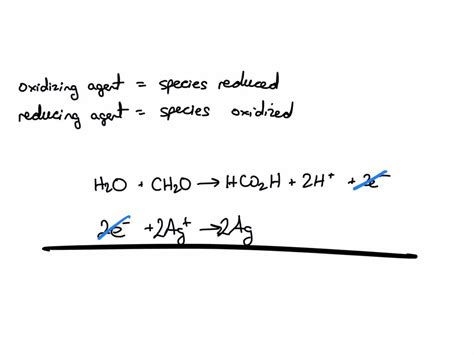 oxidizing agent = species reduced
reducing agent = species oxidized
H₂O + CH₂O → HCO₂H + 2H⁺ + 2e⁻
2e⁻ + 2Ag⁺ → 2Ag